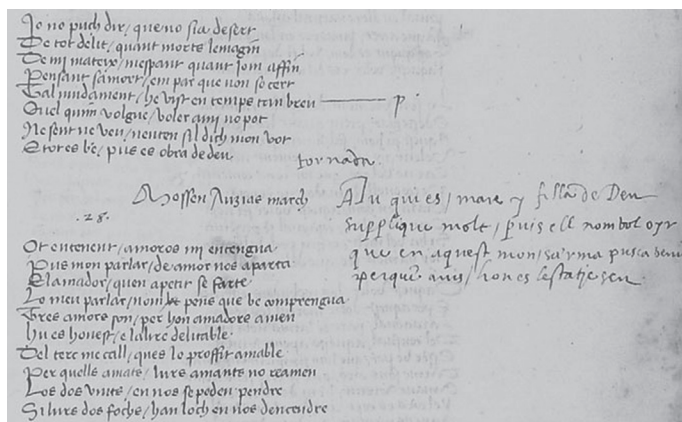 Jo no puch dir, que no sia desert
De tot delit, quant morta lemagin
De mi mateix, mespant quant jom affin
Pensant sa mort, em par que non so cert
Tal mudament, he vist en temps tan breu p
Quel quim volgue, voler ami no pot
Ne sent ne veu, nenten sil dich mon vot
E tot es be, pus es obra de deu
tornada
Mossen Auzias march
.28.
A tu qui es / mare y filla de Deu
supplique molt, puis ell nom vol oyr
que en aquest mon, sa'rma pusca
perque / hon es lestatje seu
Ot entenent, amoros mi entengua
Pus mon parlar, de amor nos aparta
El amador, quen apetir se farta
Lo meu parlar, nom pens que be comprengua
Tres amors son, per hon amadors amen
Hu es honest, e laltre delitable
Del terc me call, ques lo proffit amable
Per quells amats, lurs amants no reamen
Los dos units, en nos se poden pendre
Si lurs dos fochs, han loch en nos dencendre